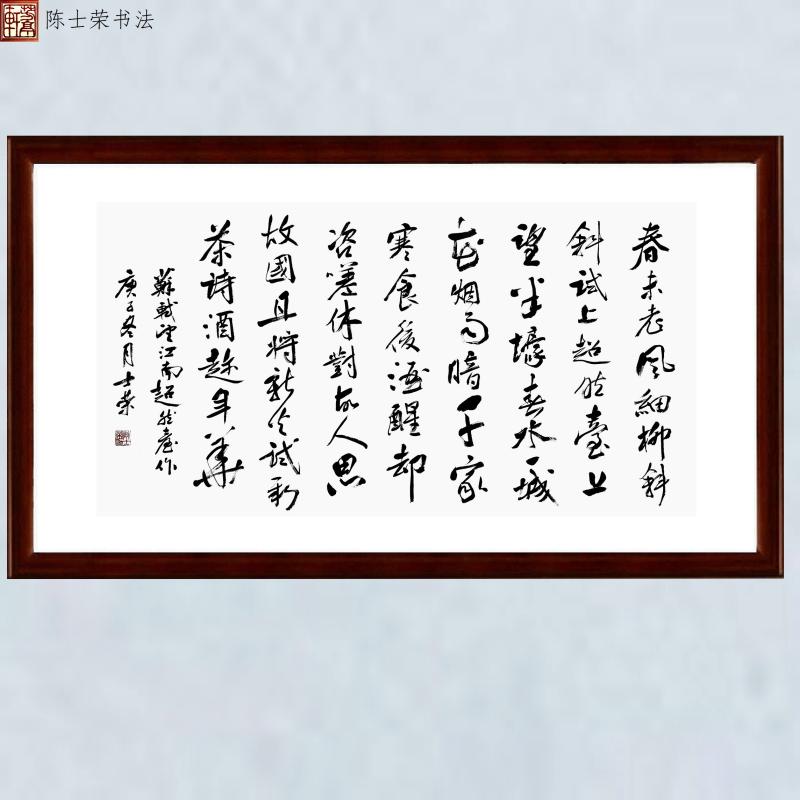 陈士荣书法
春未老風細柳斜
斜試上超然臺上
望半壕春水一城
花烟雨暗千家
寒食後酒醒却
咨嗟休對故人思
故國且將新火試新
茶詩酒趁年華
蘇軾望江南超然臺作
庚子冬月士荣